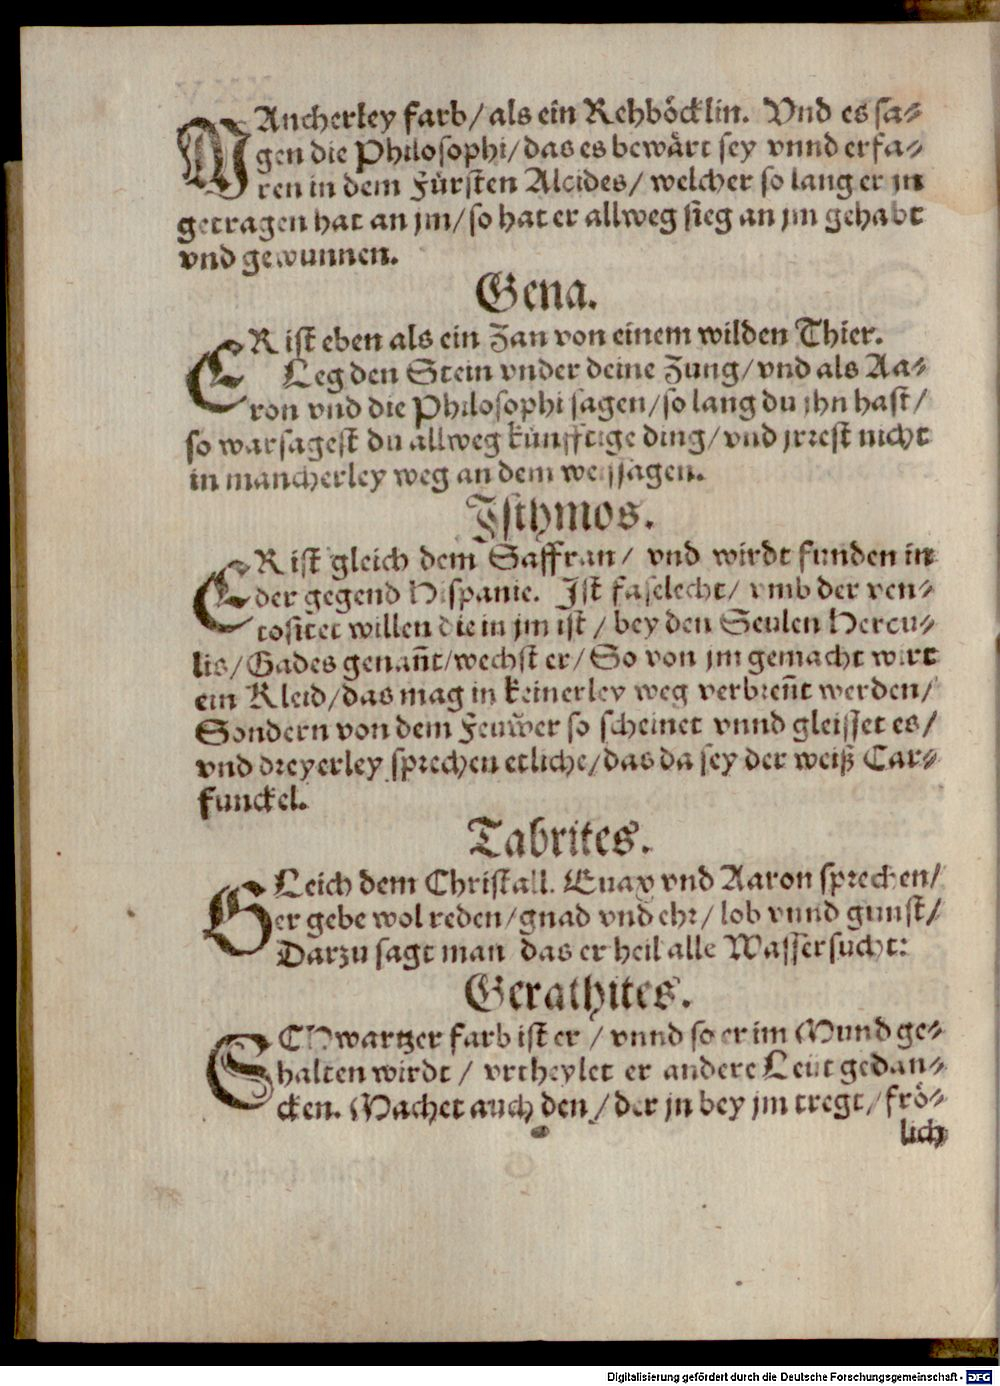 MAncherley farb/ als ein Rehböcklin. Vnd es sa⸗
gen die Philosophi/ das es bewärt sey vnnd erfa⸗
ren in dem Fürsten Alcides/ welcher so lang er jn
getragen hat an jm/ so hat er allweg sieg an jm gehabt
vnd gewunnen.
Gena.
ER ist eben als ein Zan von einem wilden Thier.
Leg den Stein vnder deine Zung/ vnd als Aa⸗
ron vnd die Philosophi sagen/ so lang du jhn hast/
so warsagest du allweg künfftige ding/ vnd jrrest nicht
in mancherley weg an dem weissagen.
Isthmos.
ER ist gleich dem Saffran/ vnd wirdt funden in
der gegend Hispanie. Ist faselecht/ vmb der ven⸗
tositet willen die in jm ist/ bey den Seulen Hercu⸗
lis/ Gades genañt/ wechst er/ So von jm gemacht wirt
ein Kleid/ das mag in keinerley weg verbreñt werden/
Sondern von dem Feuwer so scheinet vnnd gleisset es/
vnd dreyerley sprechen etliche/ das da sey der weiß Car⸗
funckel.
Tabrites.
GLeich dem Christall. Euax vnd Aaron sprechen/
er gebe wol reden/ gnad vnd ehr/ lob vnnd gunst/
Darzu sagt man das er heil alle Wassersucht:
Gerathites.
SCHwartzer farb ist er/ vnnd so er im Mund ge⸗
halten wirdt/ vrtheylet er andere Leut gedan⸗
cken. Machet auch den/ der jn bey jm tregt/ frö⸗
lich
Digitalisierung gefördert durch die Deutsche Forschungsgemeinschaft - DFG